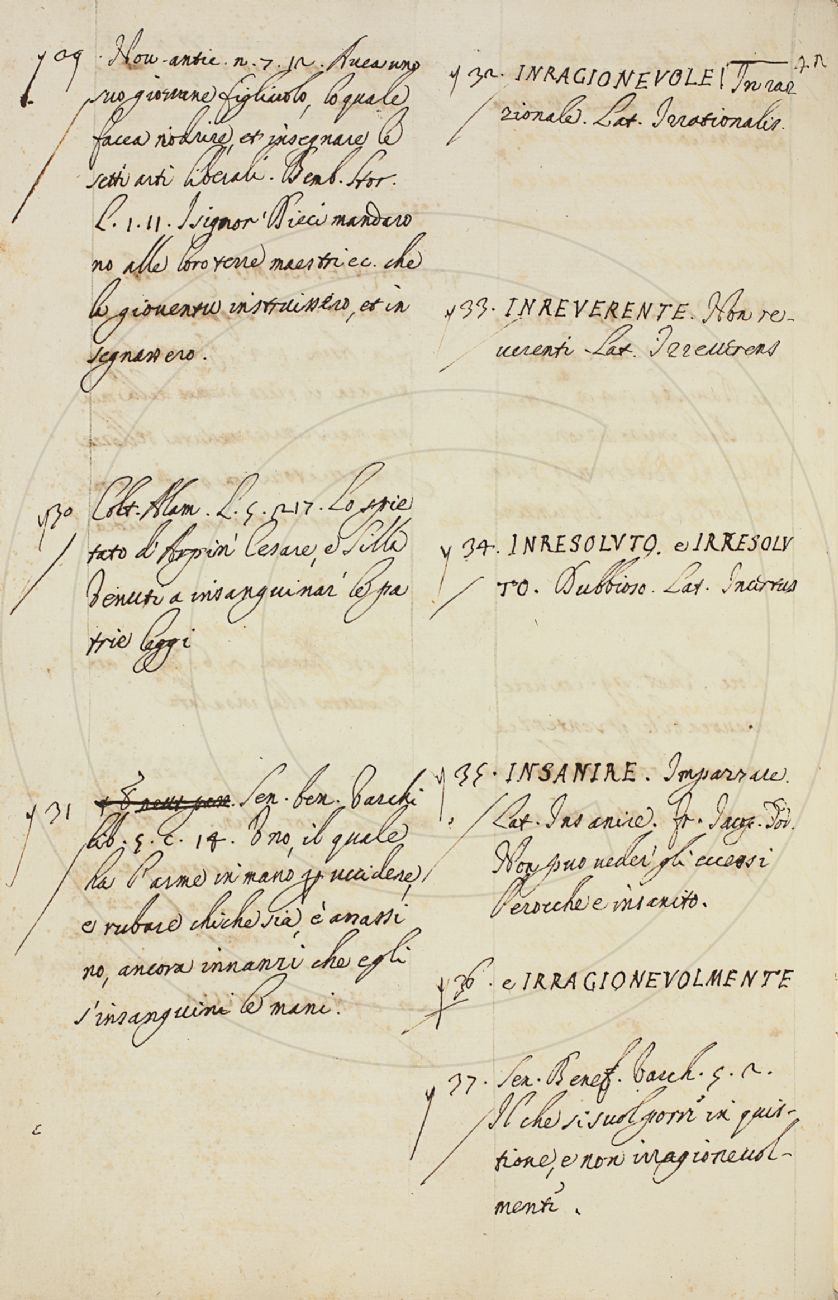 29 . Nov. antic. n. 7. 12. Avea uno
suo giovane figliuolo, lo quale
facea nodrire, et insegnare le
setti arti liberali. Bemb. Stor.
L. 1. 11. I signor' Dieci mandaro
no alle loro terre maestri ec. che
la gioventu instruissero, et in
segnassero.
30 Colt. Alam. L. 5. 217. Lo spie
tato d'Arpin' Cesare, e Silla
Venuti a insanguinar' le pa
trie leggi
31 Sen. ben. Varchi
lib. 5. c. 14. Uno, il quale
ha l'arme in mano p uccidere,
e rubare chi che sia, è assassi
no, ancora innanzi che egli
s'insanguini le mani.
32. INRAGIONEVOLE! Inraz
zionale. Lat. Irrationalis.
33. INREVERENTE. Non re-
verenti. Lat. Irreverens
34. INRESOLVTO. e IRRESOLV
TO. Dubbioso. Lat. Incertus
35. INSANIRE. Impazzare.
Lat. Insanire. Fr. Jacop. Tod.
Non puo veder' gli eccessi
Perocche e insanito.
36. e IRRAGIONEVOLMENTE
37. Sen. Benef. Varch. 5. 2.
Il che si suol porr' in quis-
tione, e non irragionevol-
menti.